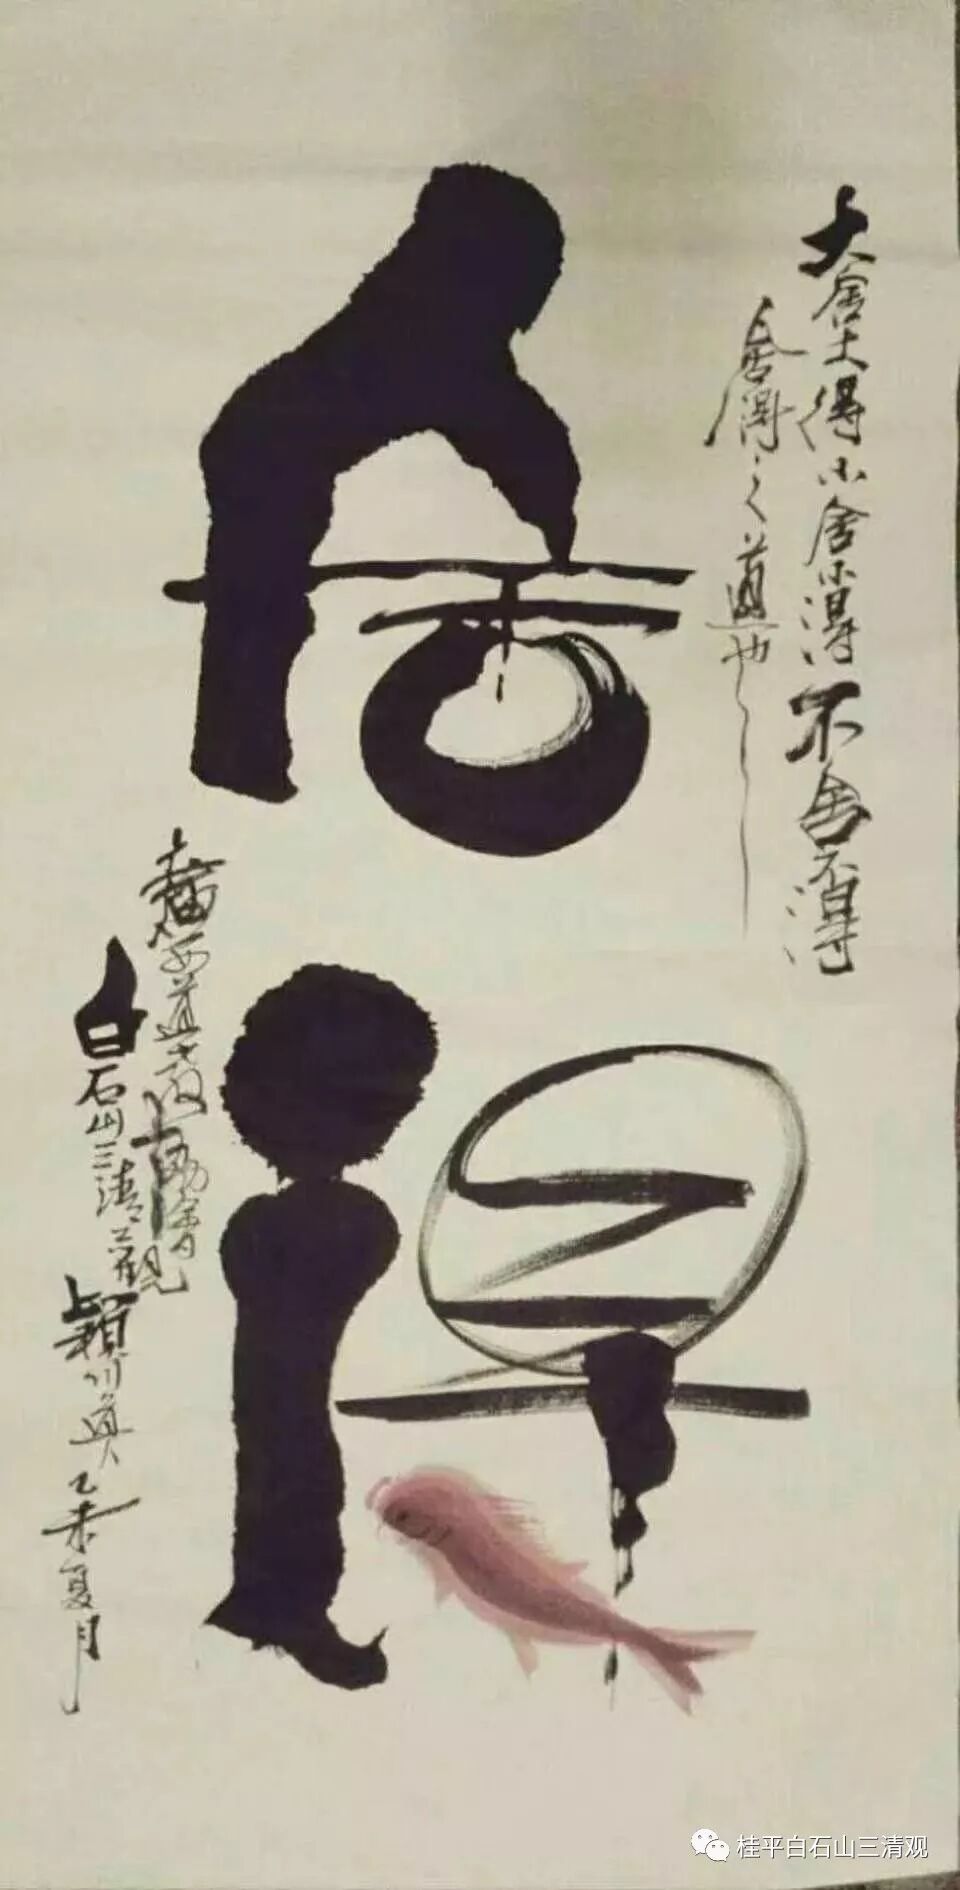 大舍大得小舍小得不舍不得
舍得之道也
舍得
白石山三清观颖川道人乙未夏月
桂平白石山三清观